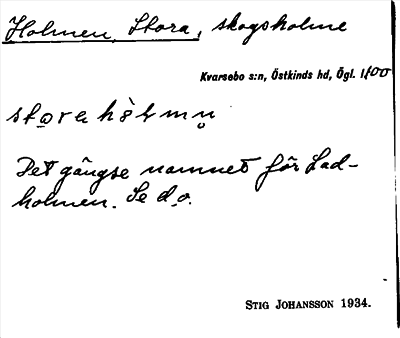 Holmen, Stora, skogsholme
Kvarsebo s:n, Östkinds hd, Ögl. 1/00
Det gängse namnet för Lad-
holmen. Se d.o.
STIG JOHANSSON 1934.